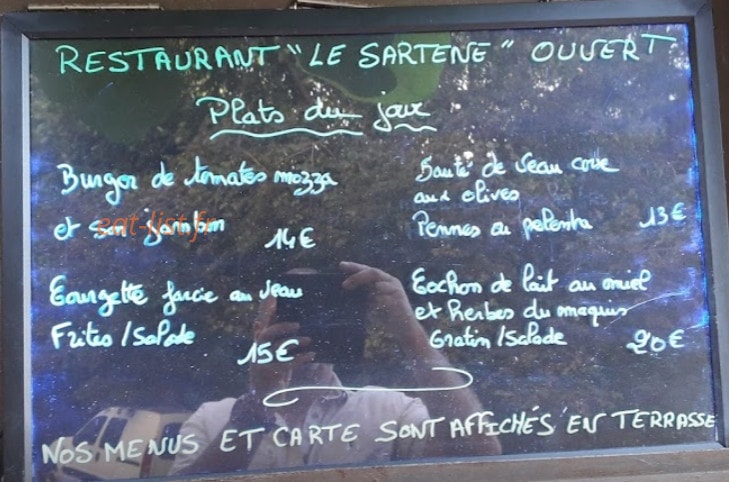 RESTAURANT "LE SARTENE" OUVERT
Plats du jour
Burger de tomates mozza
et son jambon 14€
Sauté de veau corse
aux olives
Pennes ou polenta 13€
Courgette farcie au veau
Frites / Salade
15€
Cochon de lait au miel
et herbes du maquis
Gratin / Salade 20€
NOS MENUS ET CARTE SONT AFFICHÉS EN TERRASSE
eat-list.fr